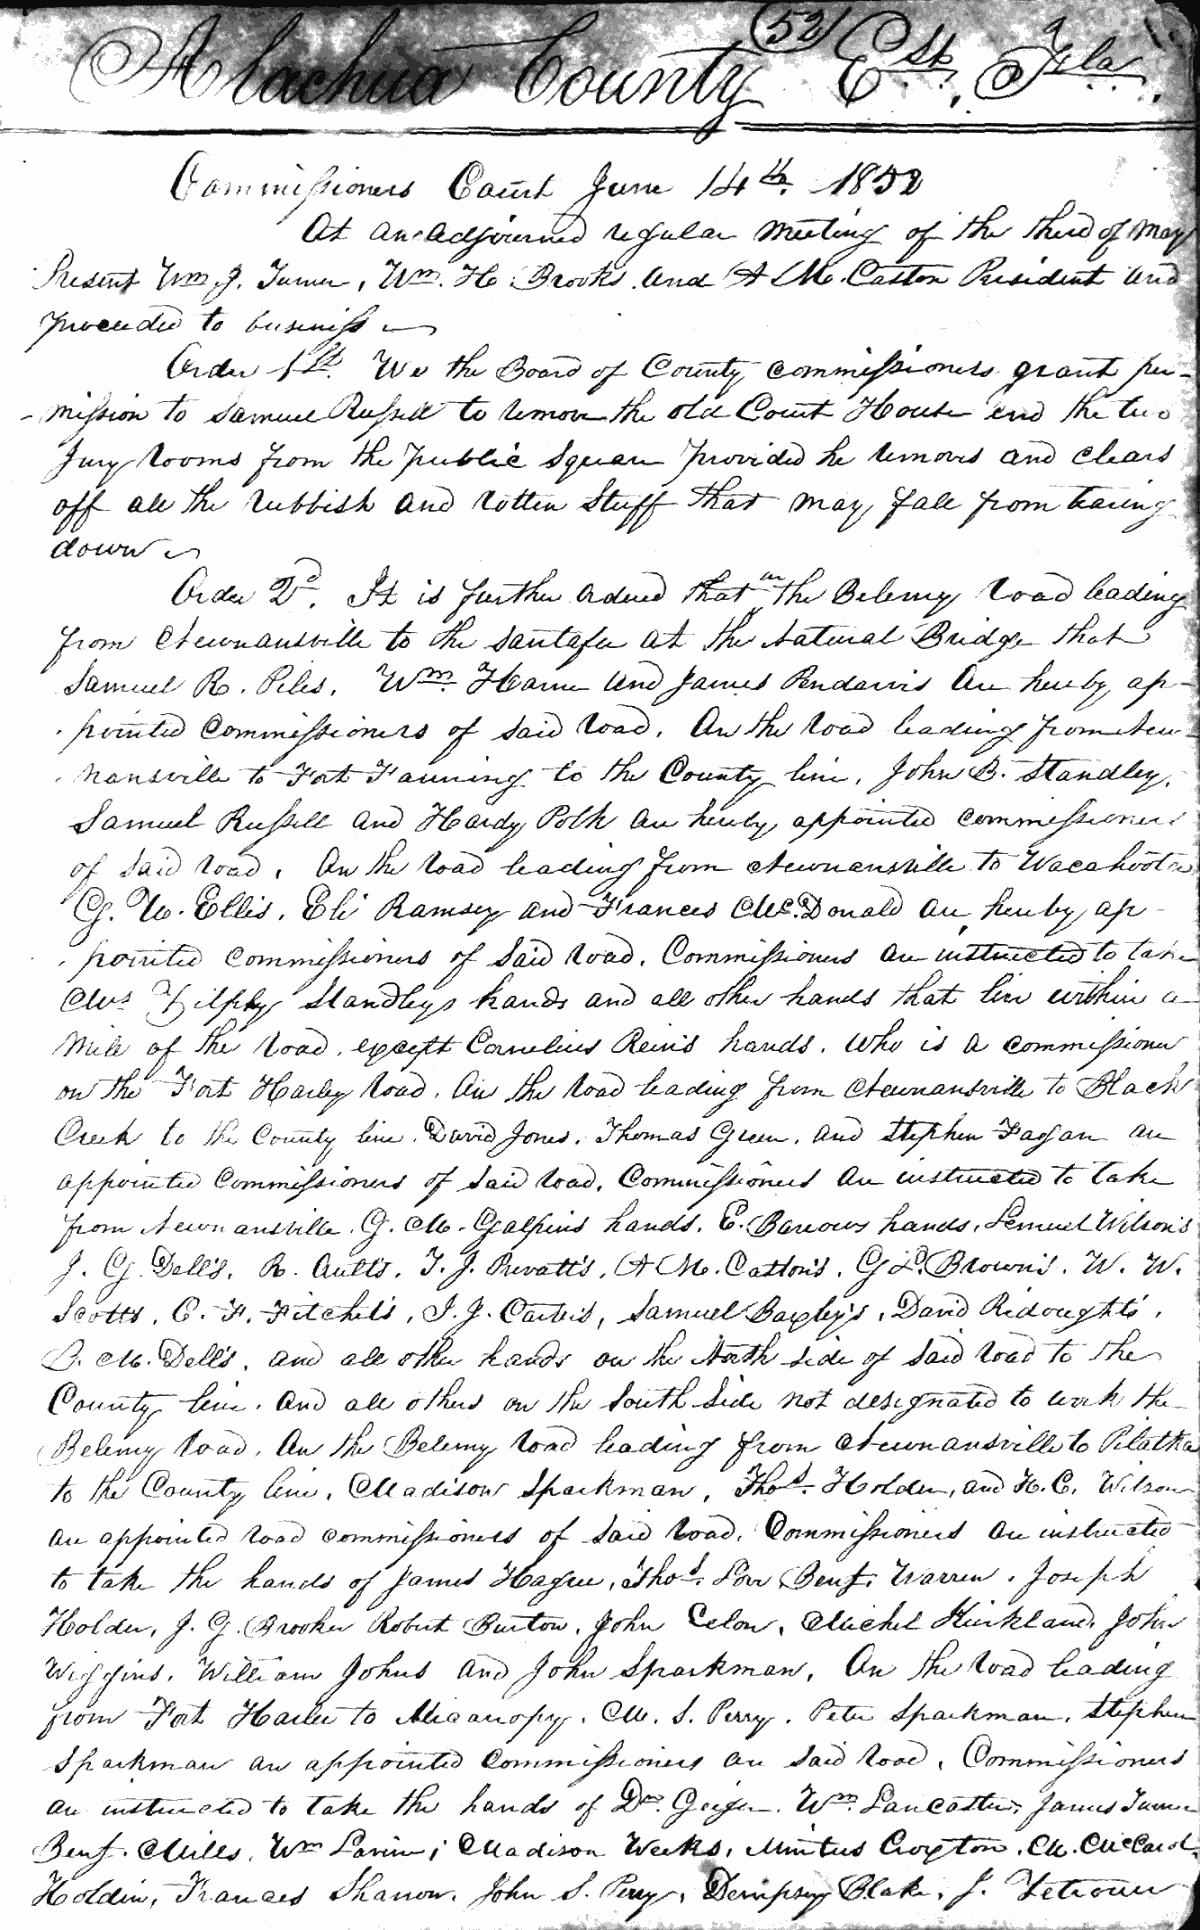 52
Alachua County Est. Fla.
Commissioners Court June 14th. 1852
At an adjourned regular meeting of the third of May
Present Wm. J. Turner, Wm. H. Brooks and A M. Caston President and
proceeded to business
Order 1st. We the Board of County commissioners grant per-
-mission to Samuel Russell to remove the old Court House and the two
Jury rooms from the public square provided he removes and clears
off all the rubbish and rotten stuff that may fall from tearing
down
Order 2d. It is further ordered that on the Belemy road leading
from Newnansville to the santafee at the Natural Bridge that
Samuel R. Piles, Wm. Harne and James Pendarvis are hereby ap-
pointed commissioners of said road. On the road leading from New-
nansville to Fort Fanning to the County line, John B. Standley,
Samuel Russell and Hardy Polk are hereby appointed commissioners
of said road, On the road leading from Newnansville to Wacahootie
G. W. Ellis, Eli Ramsey and Frances McDonald are hereby ap-
pointed commissioners of said road. Commissioners are instructed to take
Mrs Zilphy Standleys hands and all other hands that live within a
mile of the road, except Cornelius Rein's hands, who is a commissioner
on the Fort Harley road. On the road leading from Newnansville to Black
Creek to the County line. David Jones, Thomas Green, and Stephen Fagan are
appointed Commissioners of said road, Commissioners are instructed to take
from Newnansville. G. M. Galpins hands, E. Barrows hands, Lemuel Wilson's
J. G. Dell's, R. Ault's, T. J. Prevatt's, A M. Caston's, G L. Brown's, W. W.
Scotts, C. F. Fitchet's, I. J. Carter's, Samuel Baxley's, David Ridought's,
B. M. Dell's, and all other hands on the North side of said road to the
County line. and all others on the South side not designated to work the
Belemy road. On the Belemy road leading from Newnansville to Pilatka
to the County line, Madison Sparkman, Thos. Holder, and H. C. Wilson
are appointed road commissioners of said road. Commissioners are instructed
to take the hands of James Hague, Thos. Love Benj. Warren, Joseph
Holder, J. G. Brooker Robert Burton, John Celon, Michel Kirkland, John
Wiggins, William Johns and John Sparkman, On the road leading
from Fort Harlee to Micanopy. M. S. Perry, Peter Sparkman, Stephen
Sparkman are appointed commissioners on said road, Commissioners
are instructed to take the hands of Dm. Geiger, Wm. Lancaster, James Turner
Benj. Mills, Wm Lanim, Madison Weeks, Minitus Croxton, M. McCard
Holdin, Frances Sharron, John S. Perry, Dempsey Blake, J. Tetroun